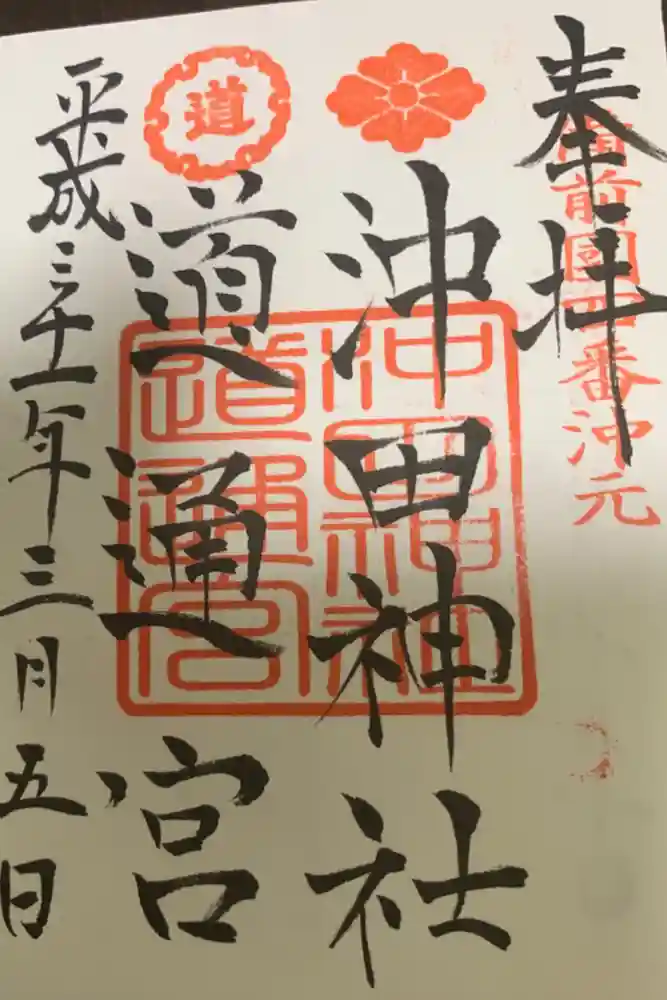 奉拝
備前國四番沖元
沖田神社
道通宮
平成三十一年三月五日
道
沖田神社
道通宮